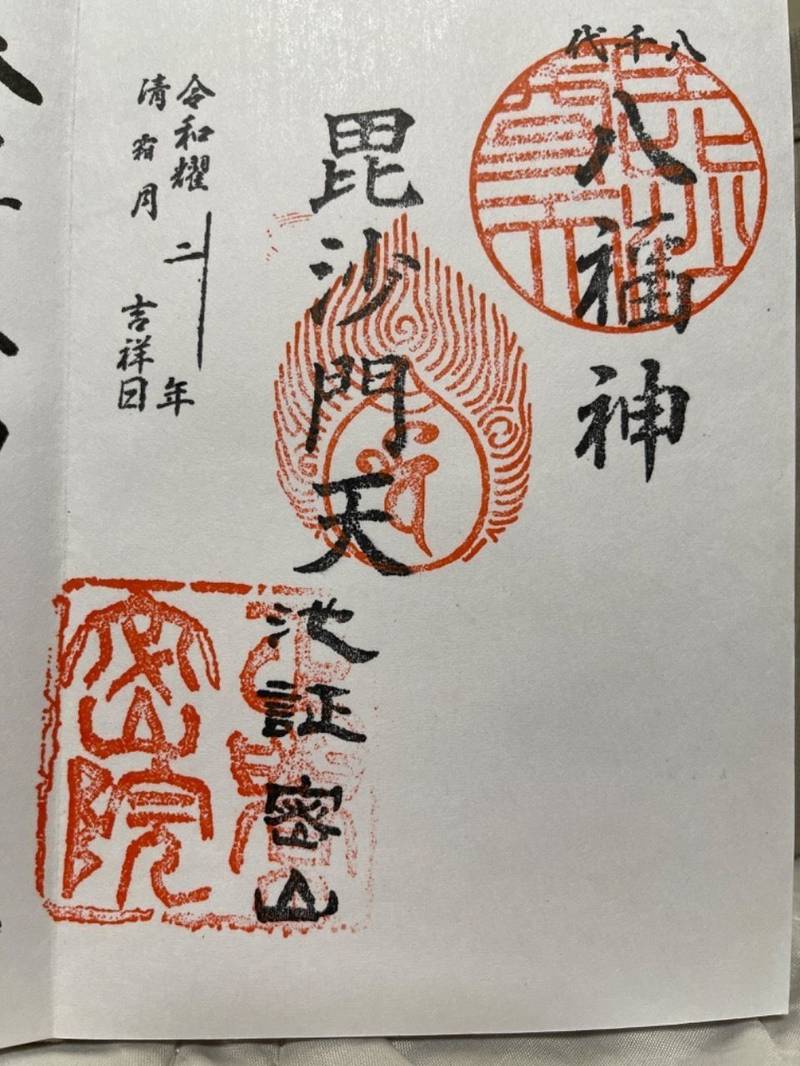 八千代
八福神
毘沙門天
池証密山
令和耀二年
清霜月吉祥日
密院